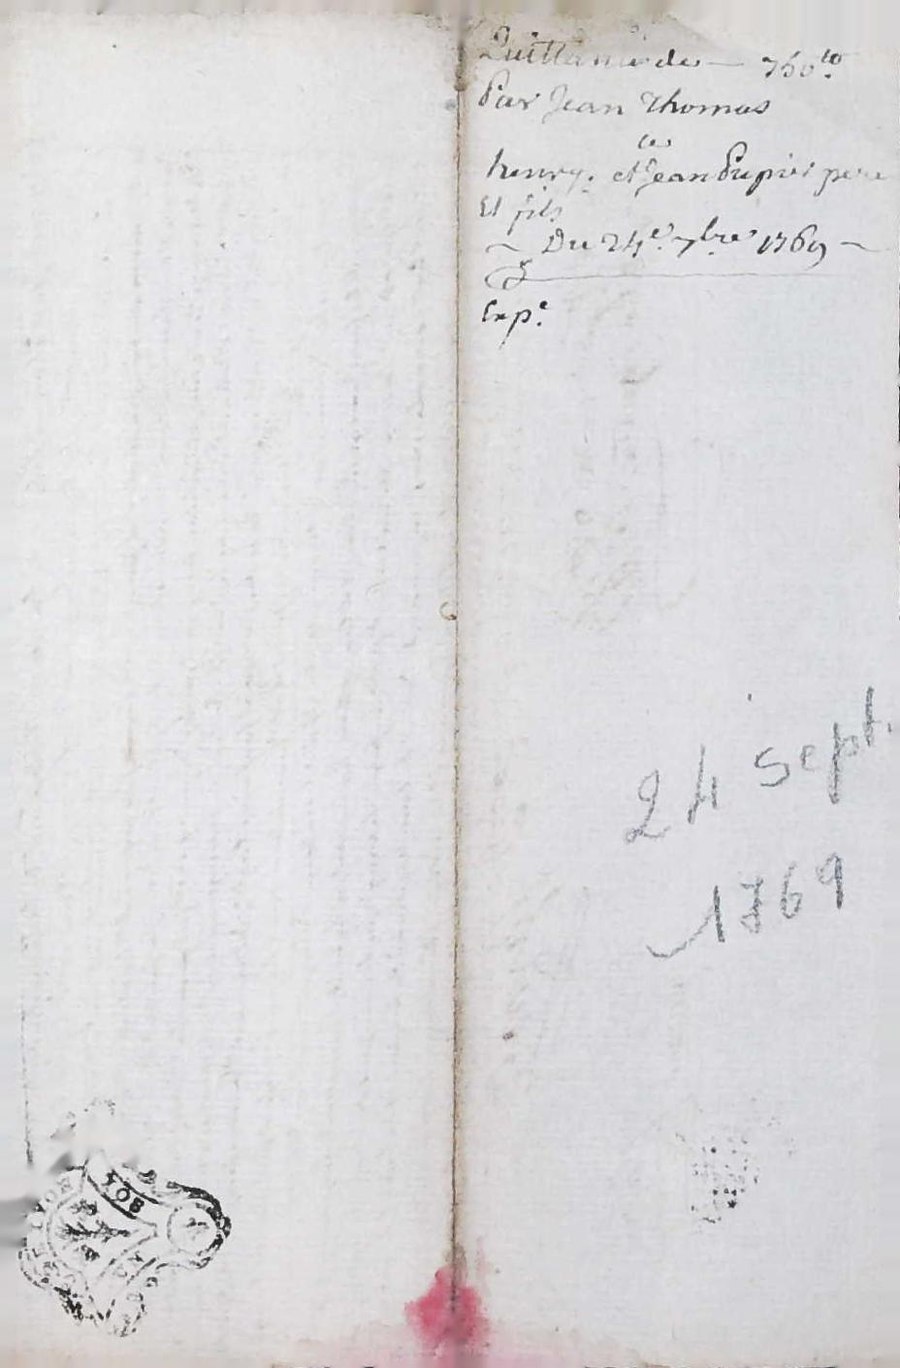 Quittance de — 760 ᵗᵗ
Par Jean Thomas
les
henry. et Jean Dupier pere
Et fils
~ Du 24e. 7bre 1769 ~
Exp.e
24 sept.
1769
SOL